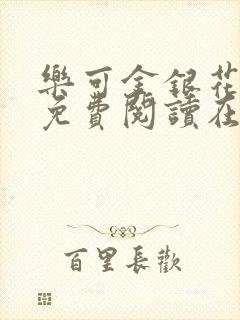 樂可金銀花
免費閱讀在
百里長歡